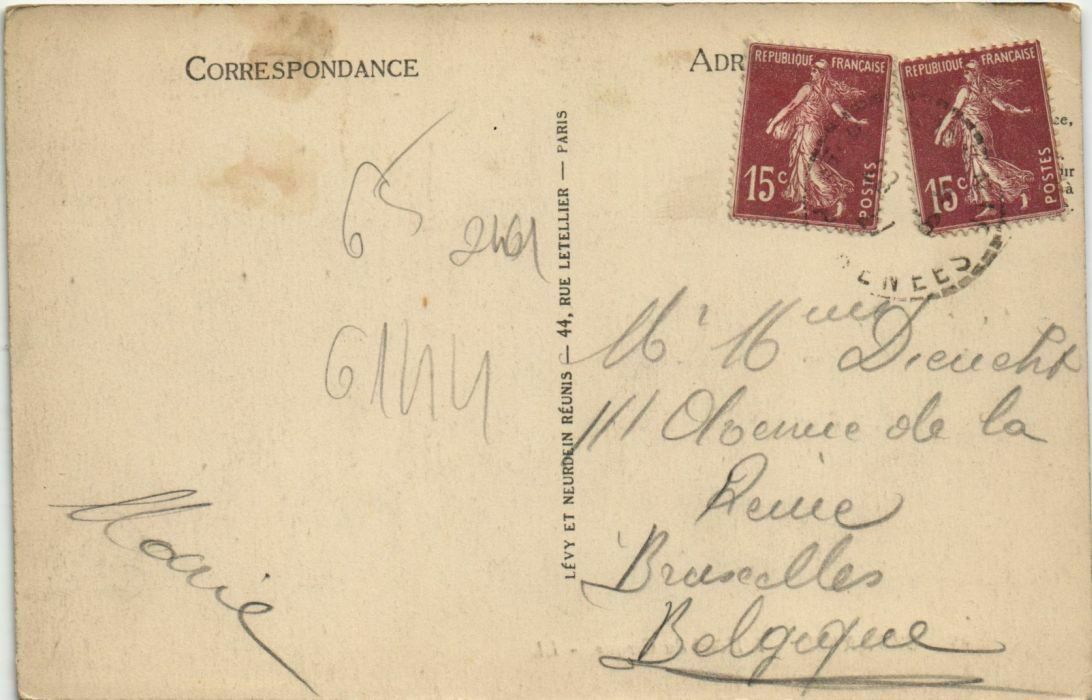 CORRESPONDANCE
65
2401
6144
Marie
LÉVY ET NEURDEIN RÉUNIS — 44, RUE LETELLIER — PARIS
ADR
RÉPUBLIQUE FRANÇAISE
15c
POSTES
RÉPUBLIQUE FRANÇAISE
15c
POSTES
ENEES
Mr Mme
111 Avenue de la
Reine
Bruxelles
Belgique